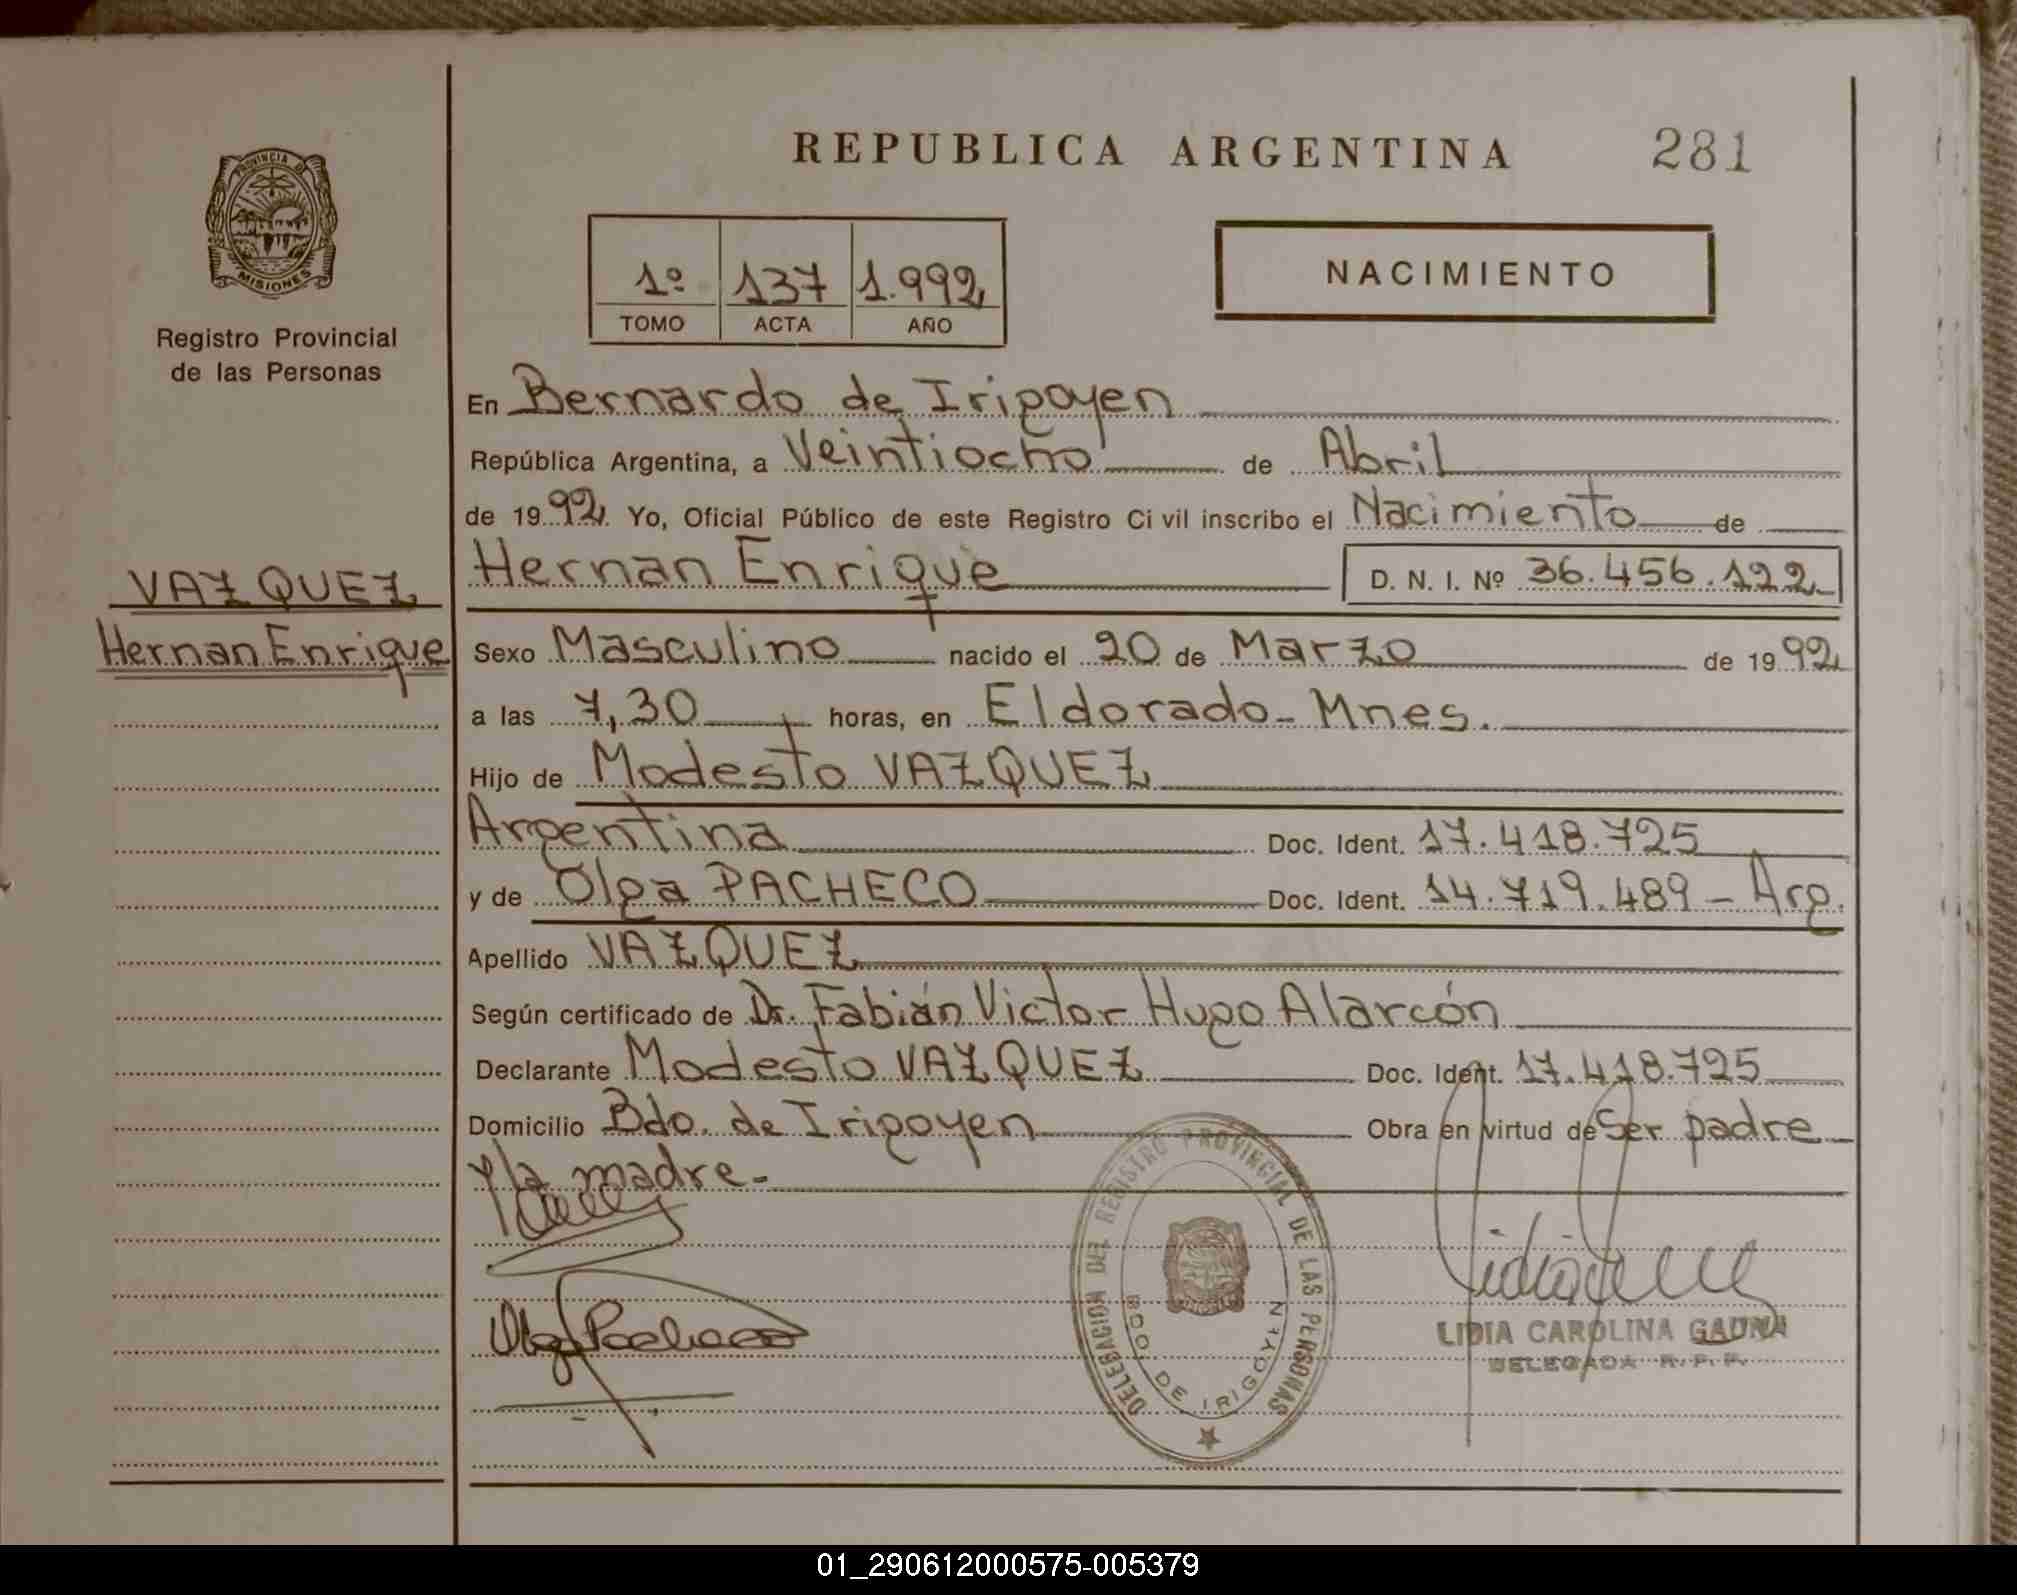 REPUBLICA ARGENTINA 281
PROVINCIA DE MISIONES
Registro Provincial
de las Personas
1º 137 1.992
TOMO ACTA AÑO
NACIMIENTO
En Bernardo de Irigoyen
República Argentina, a Veintiocho de Abril
de 1992. Yo, Oficial Público de este Registro Ci vil inscribo el Nacimiento de
VAZQUEZ
Hernan Enrique
Hernan Enrique D. N. I. Nº 36.456.122
Sexo Masculino nacido el 20 de Marzo de 1992
a las 7,30 horas, en Eldorado - Mnes.
Hijo de Modesto VAZQUEZ
Argentina Doc. Ident. 17.418.725
y de Olga PACHECO Doc. Ident. 14.719.489 - Arg.
Apellido VAZQUEZ
Según certificado de Dr. Fabián Victor Hugo Alarcón
Declarante Modesto VAZQUEZ Doc. Ident. 17.418.725
Domicilio Bdo. de Irigoyen Obra en virtud de Ser padre
y la madre.-
Olga Pacheco
DELEGACION DEL REGISTRO PROVINCIAL DE LAS PERSONAS
BDO. DE IRIGOYEN
LIDIA CAROLINA GAUNA
DELEGADA R. P. P.
01_290612000575-005379